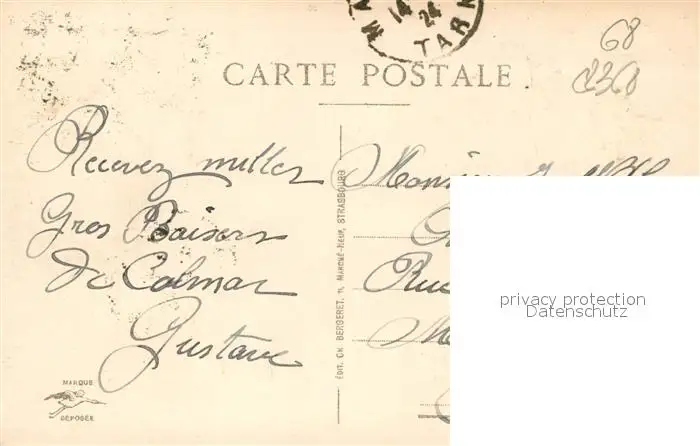 MA
14
24
TARN
68
CARTE POSTALE
Recevez milles
Gros Baisers
de Colmar
Gustave
MARQUE
DÉPOSÉE
ÉDIT. CH. BERGERET, 11, MARCHÉ-NEUF, STRASBOURG
Rue
privacy protection
Datenschutz